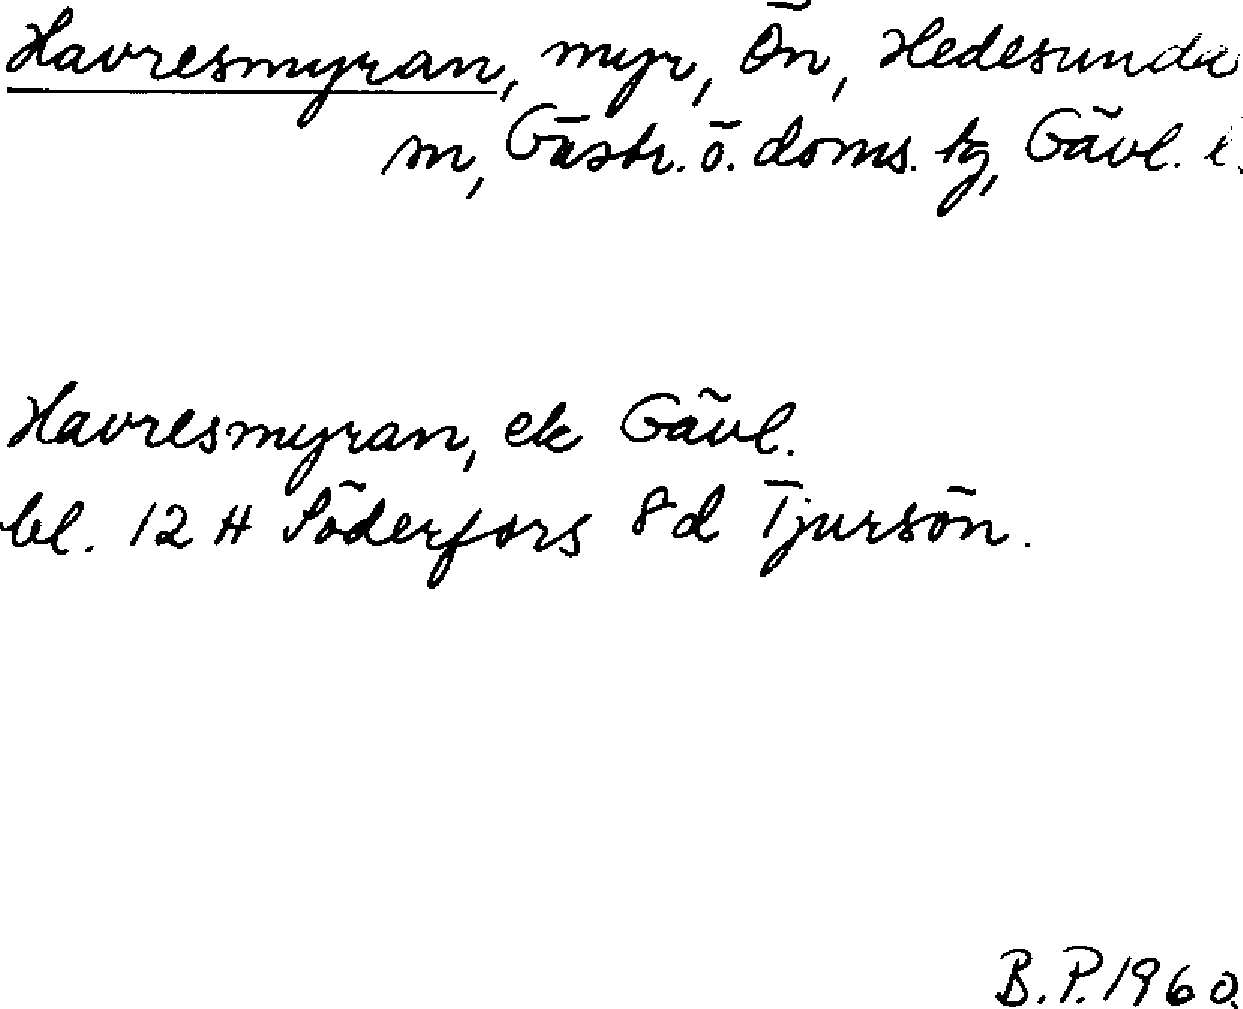 Havresmyran, myr, Ön, Hedesunda
m, Gästr. ö. doms. tg, Gävl. l.
Havresmyran, ek Gävl.
bl. 12 H Söderfors 8d Tjursön.
B.P. 1960.